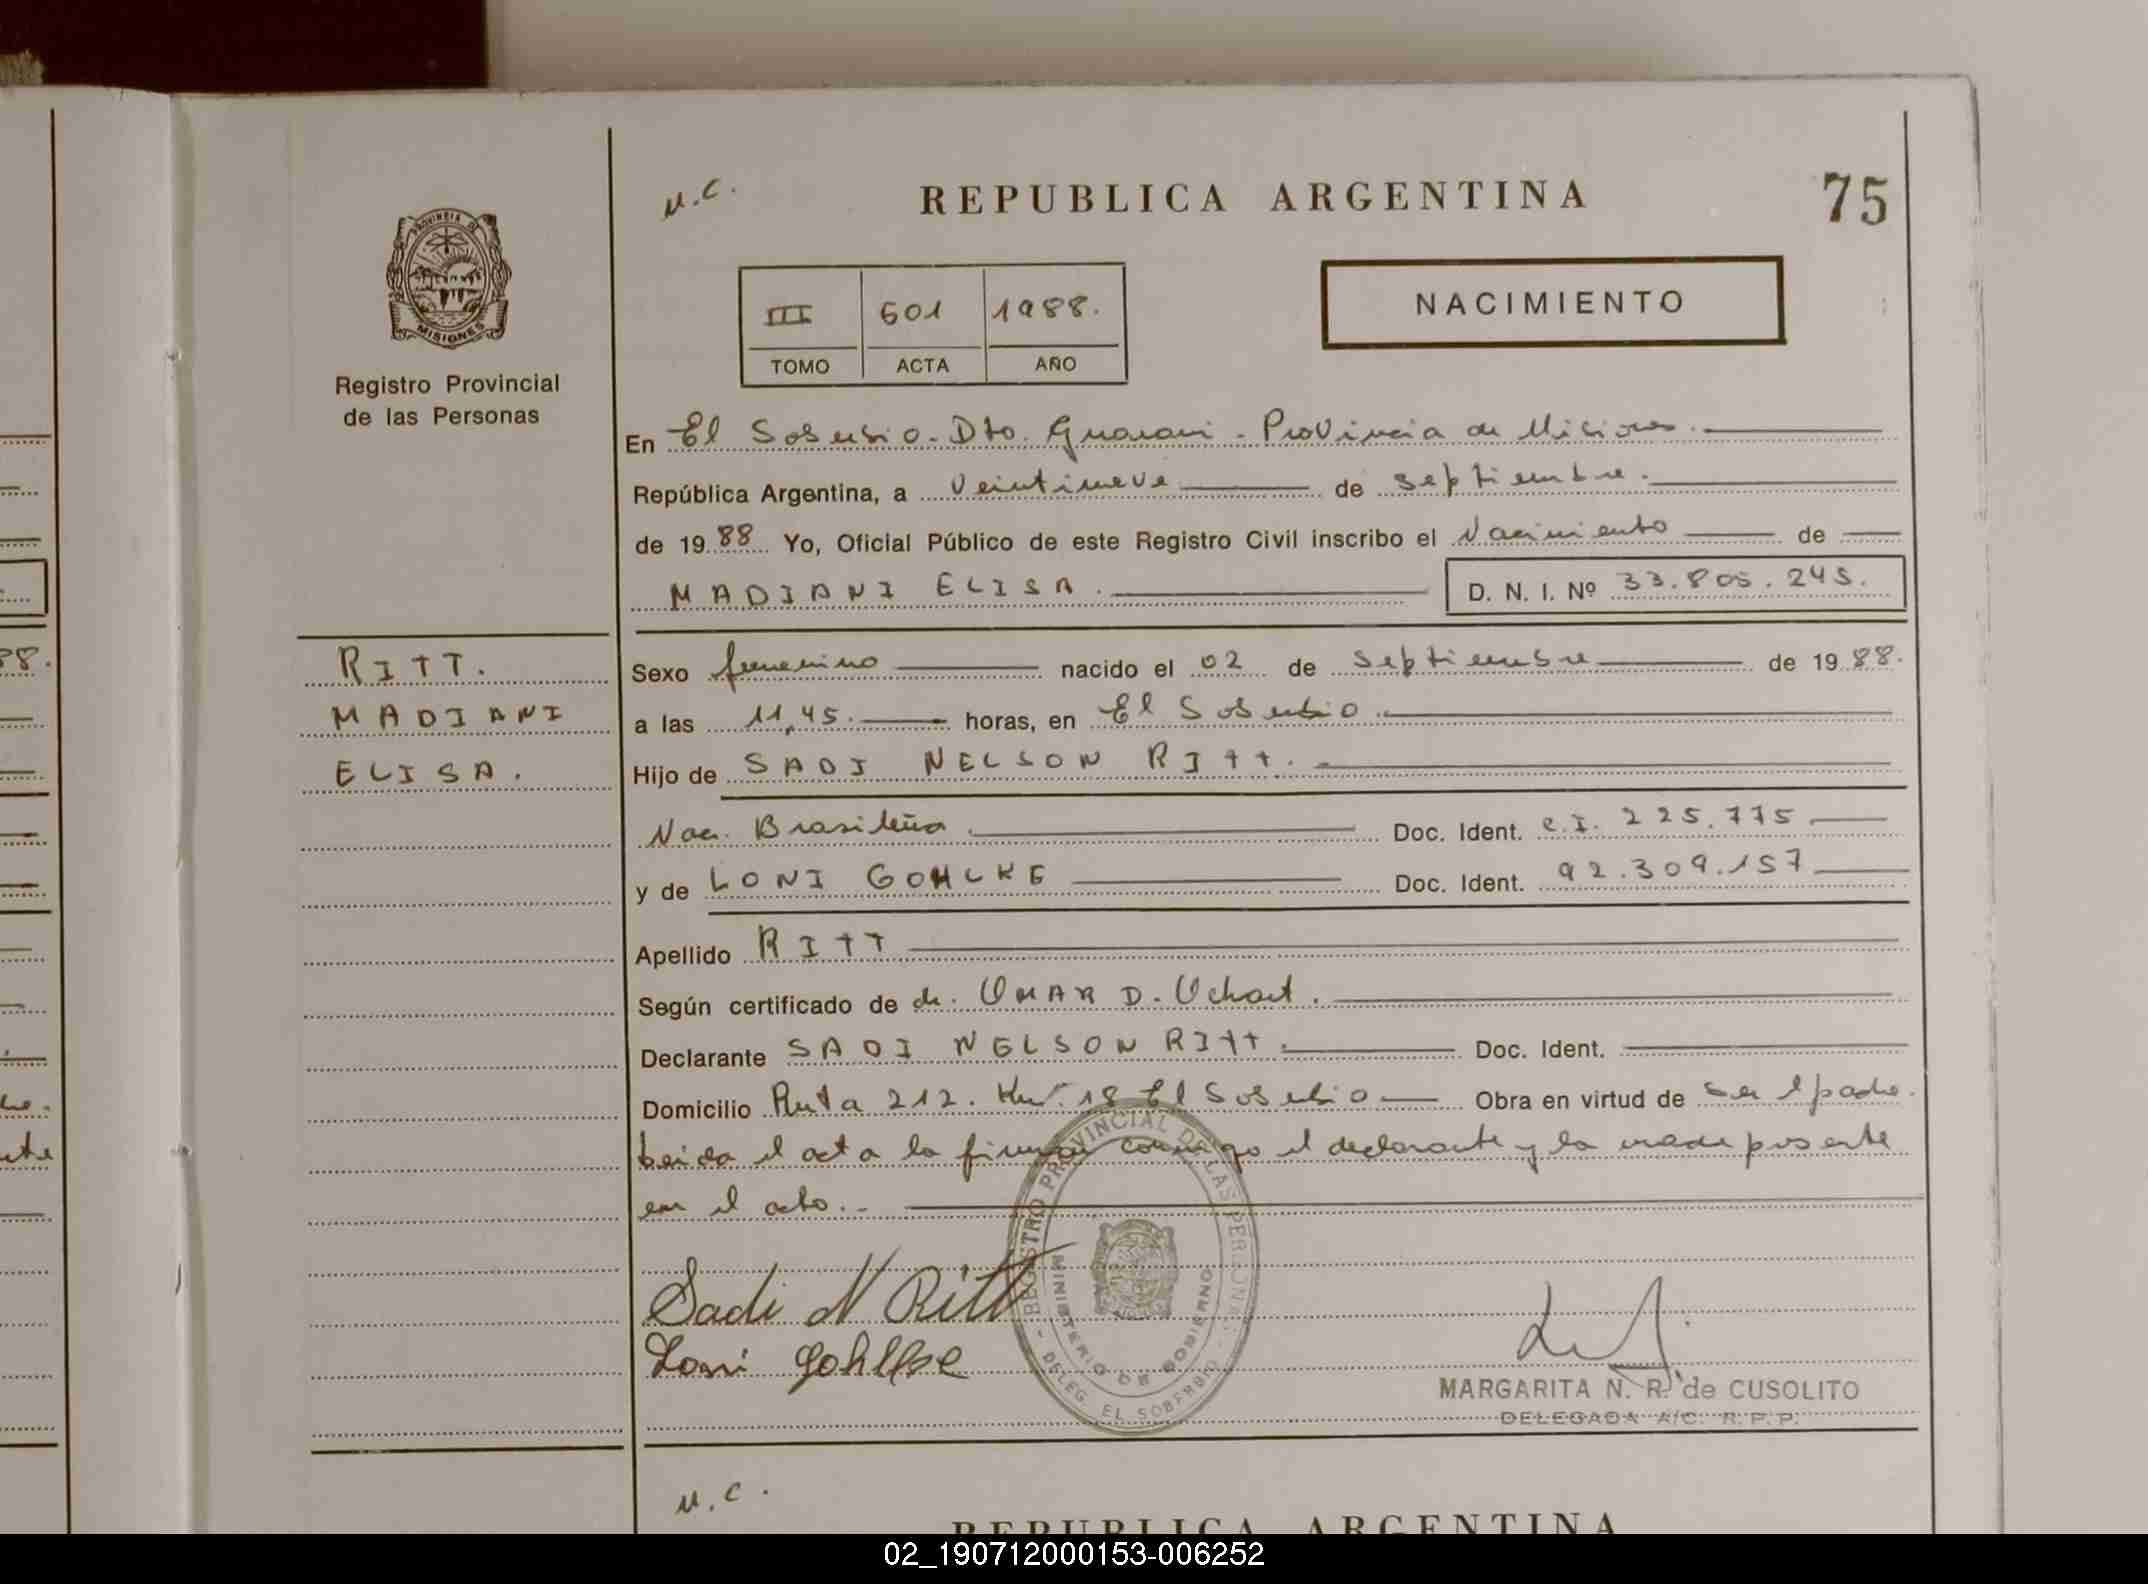 M.C.
REPUBLICA ARGENTINA
75
PROVINCIA DE
MISIONES
Registro Provincial
de las Personas
III 601 1988.
TOMO ACTA AÑO
NACIMIENTO
En El Soberbio - Dto. Guarani - Provincia de Misiones.
República Argentina, a Veintinueve de septiembre.
de 1988 Yo, Oficial Público de este Registro Civil inscribo el Nacimiento de
MADIANI ELISA. D. N. I. Nº 33.805.245.
RITT.
MADIANI
ELISA.
Sexo femenino nacido el 02 de Septiembre de 1988.
a las 11,45. horas, en El Soberbio.
Hijo de SADI NELSON RITT.
Nac. Brasileña. Doc. Ident. C.I. 225.775
y de LONI GOHLKE Doc. Ident. 92.309.157
Apellido RITT
Según certificado de dr. OMAR D. Uchart.
Declarante SADI NELSON RITT. Doc. Ident.
Domicilio Ruta 212. Km 18 El Soberbio Obra en virtud de ser el padre.
Leida el acta la firman conmigo el declarante y la madre presente
en el acto.-
Sadi N Ritt
Loni Gohlke
REGISTRO PROVINCIAL DE LAS PERSONAS
MINISTERIO DE GOBIERNO
- DELEG. EL SOBERBIO -
MARGARITA N. R. de CUSOLITO
DELEGADA A/C. R. P. P.
M.C.
REPUBLICA ARGENTINA
02_190712000153-006252